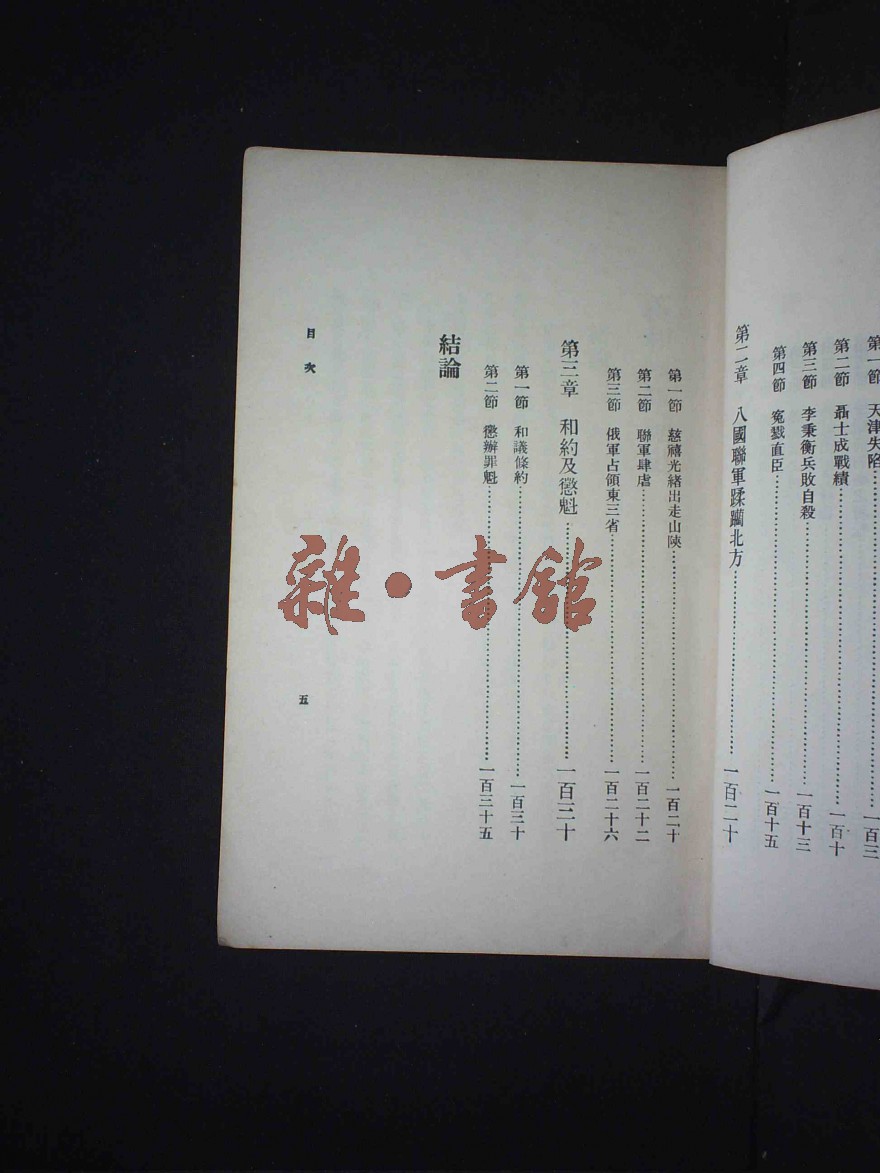 第一節　天津失陷……一百三
第二節　聶士成戰績……一百十
第三節　李秉衡兵敗自殺……一百十三
第四節　冤戮直臣……一百十五
第二章　八國聯軍蹂躪北方……一百二十
第一節　慈禧光緒出走山陝……一百二十
第二節　聯軍肆虐……一百二十二
第三節　俄軍占領東三省……一百二十六
第三章　和約及懲魁……一百三十
第一節　和議條約……一百三十
第二節　懲辦罪魁……一百三十五
結論
目次
五
雜·書館